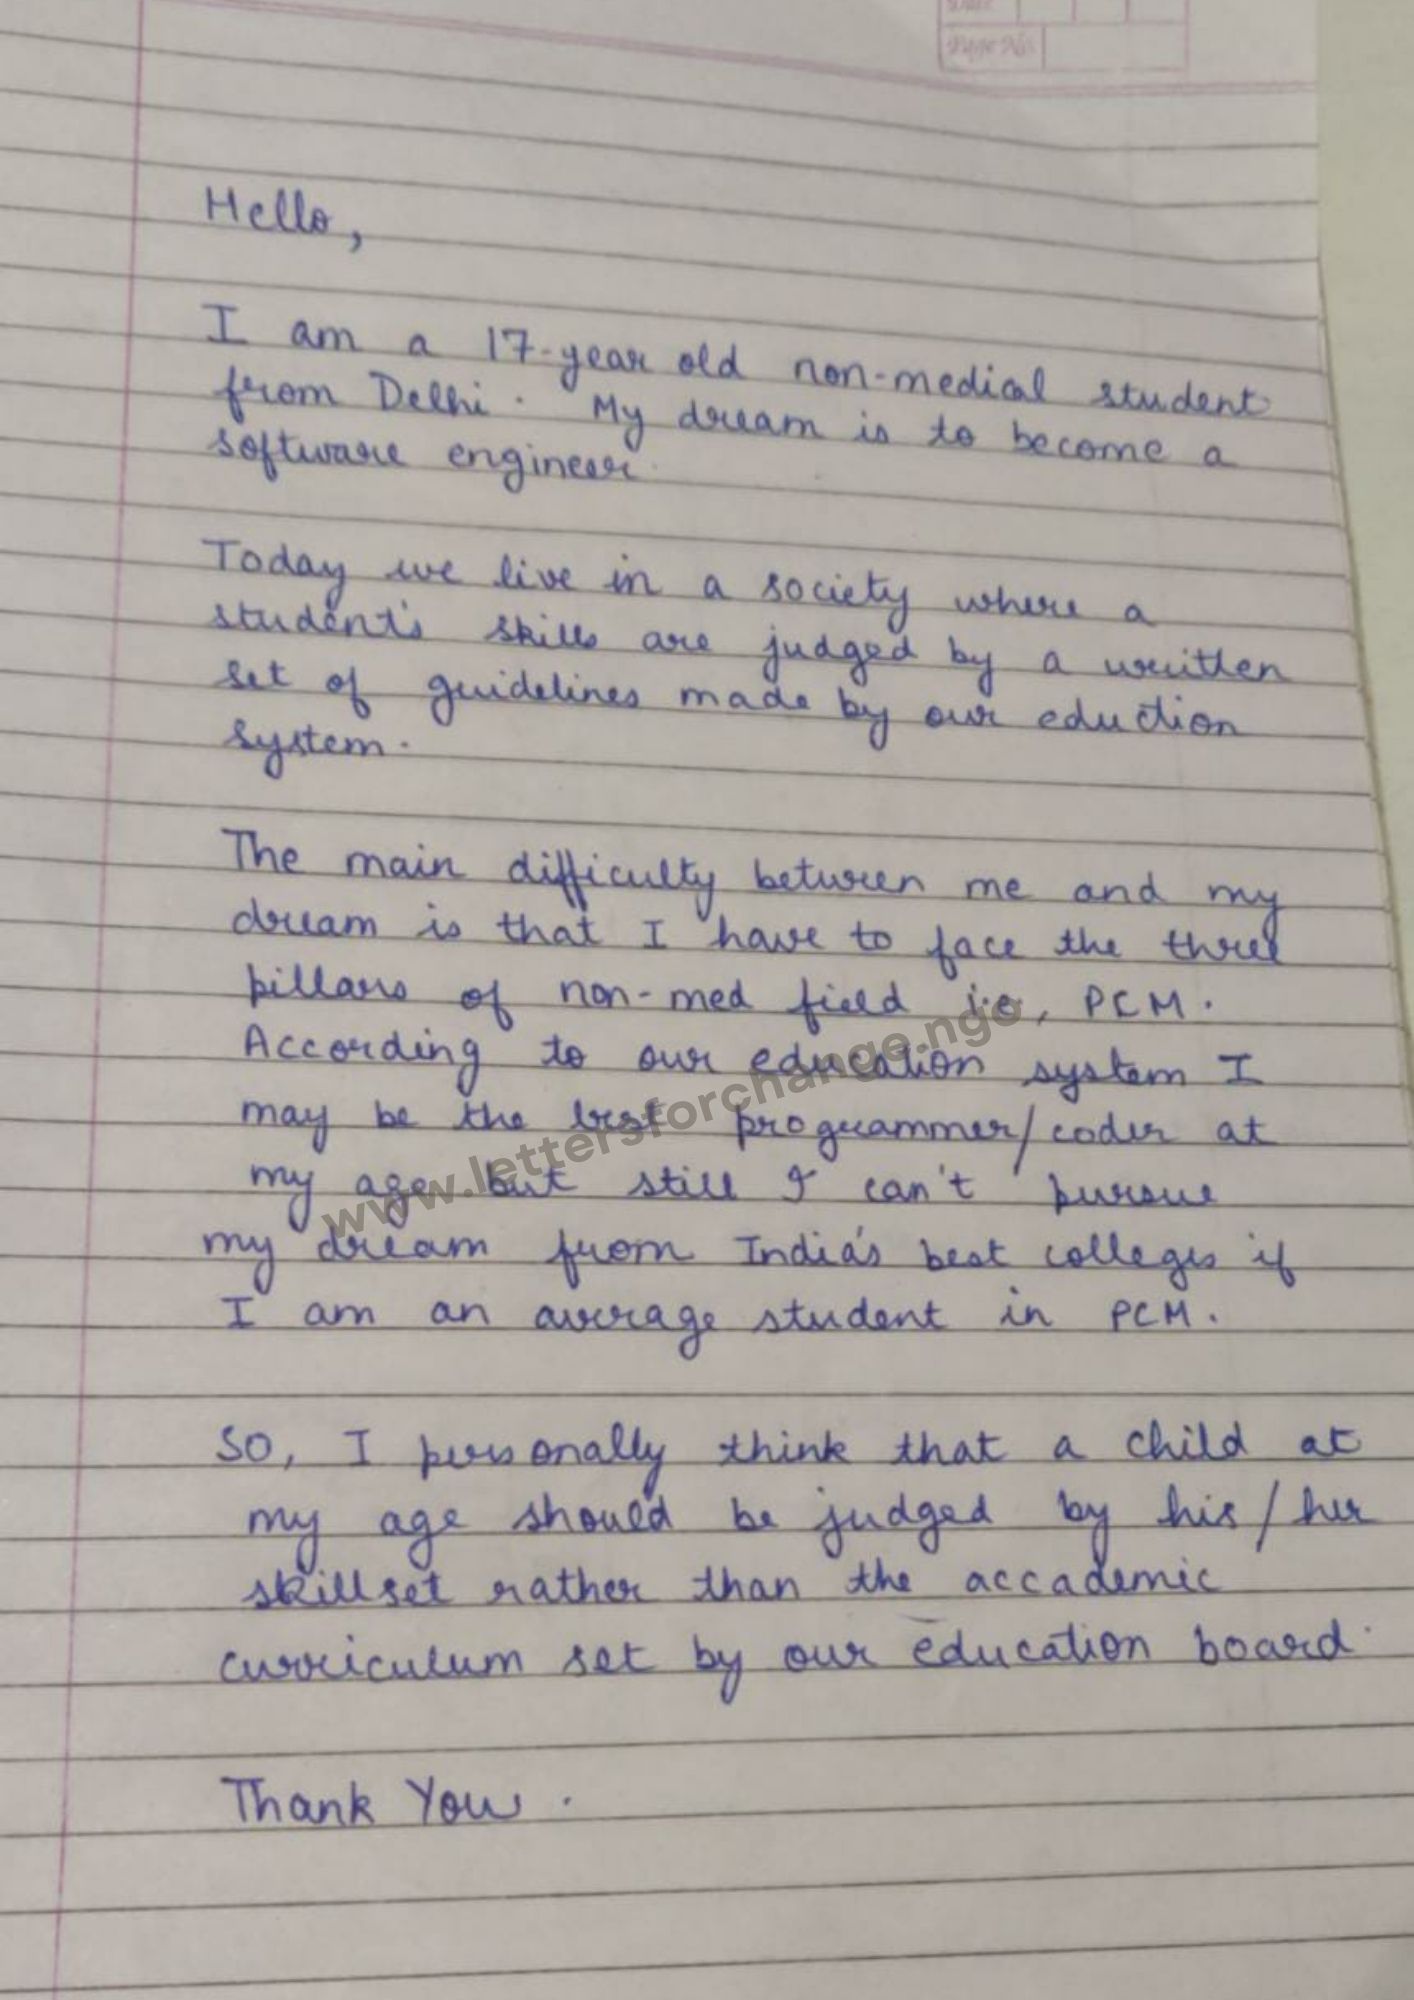 Page No.
Hello,
I am a 17-year old non-medical student
from Delhi. My dream is to become a
software engineer.
Today we live in a society where a
student's skills are judged by a written
set of guidelines made by our eduction
system.
The main difficulty between me and my
dream is that I have to face the three
pillars of non-med field i.e, PCM.
According to our education system I
may be the best programmer/coder at
my age but still I can't pursue
my dream from India's best colleges if
I am an average student in PCM.
SO, I personally think that a child at
my age should be judged by his/her
skillset rather than the accademic
curriculum set by our education board.
Thank You.
www.lettersforchange.ngo